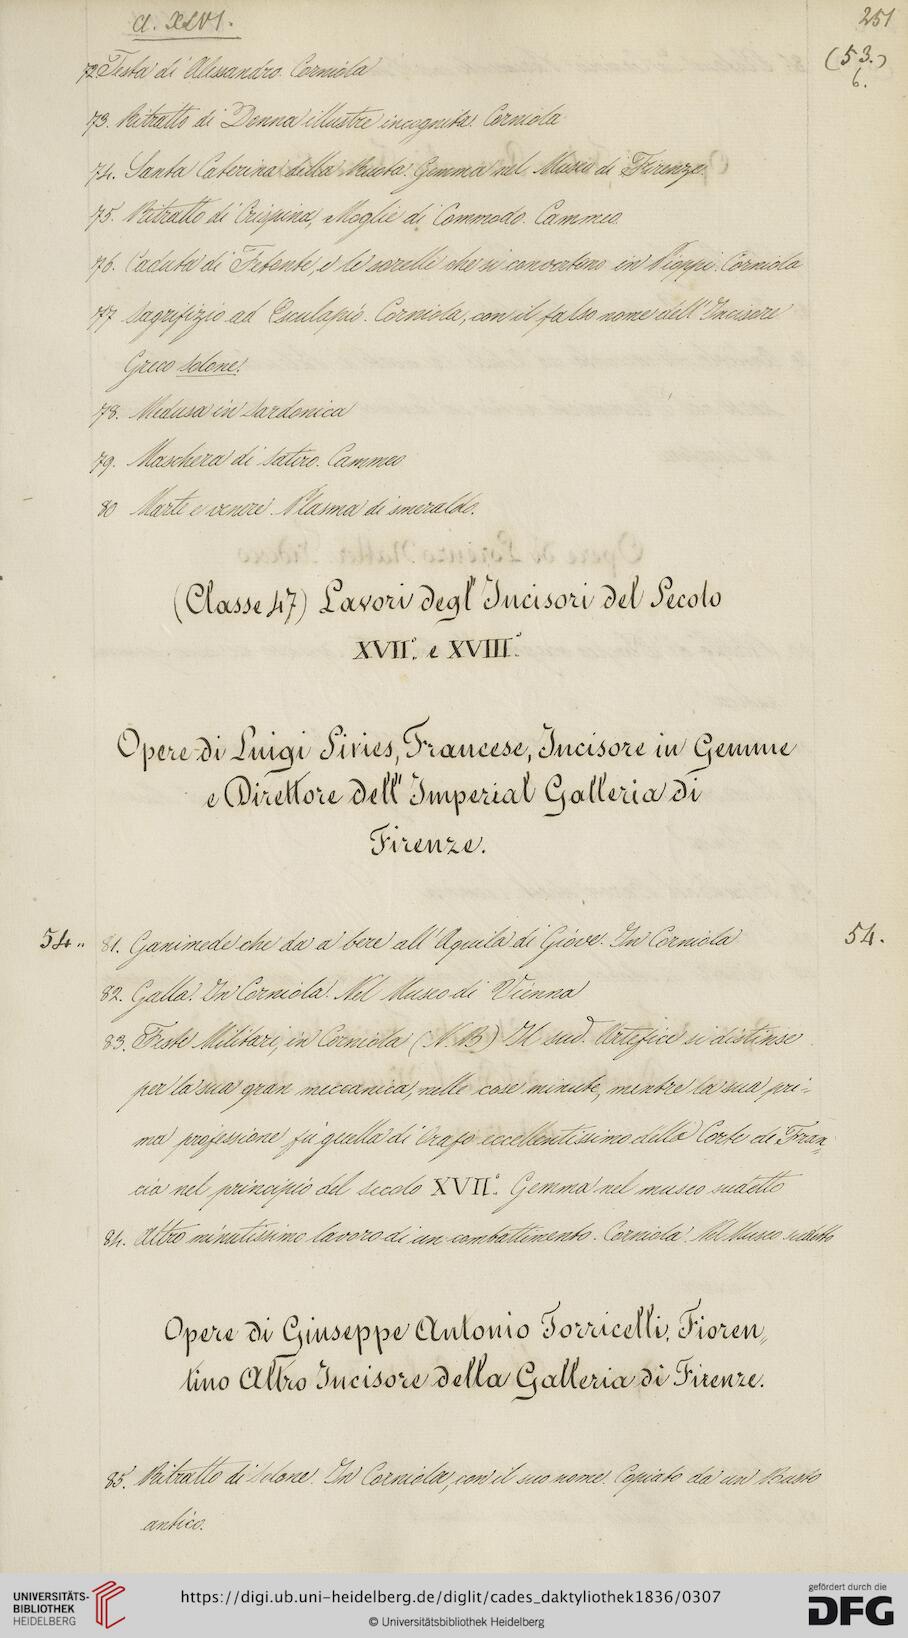 Cl. XLVI.
251
(53.)
6.
72 Testa di Alessandro. Corniola
73. Ritratto di Donna illustre incognita. Corniola
74. Santa Caterina della Ruota. Gemma nel Museo di Firenze.
75. Ritratto di Crispina, Moglie di Commodo. Cammeo.
76. Caduta di Fetonte, e le sorelle che si convertono in Pioppi. Corniola
77 Sagrifizio ad Esculapio. Corniola, con il falso nome dell'Incisore
Greco Solone.
78. Medusa in Sardonica
79. Maschera di Satiro. Cammeo
80 Marte e venere. Plasma di smeraldo.
(Classe 47) Lavori degl'Incisori del Secolo
XVII.º e XVIII.º
Opere di Luigi Siries, Francese, Incisore in Gemme
e Direttore dell'Imperial Galleria di
Firenze.
54.. 81. Ganimede che da a bere all'Aquila di Giove. In Corniola 54.
82. Galla. In Corniola. Nel Museo di Vienna
83. Feste Militari, in Corniola (N.B.) Il sud. Artefice si distinse
per la sua gran meccanica, nelle cose minute, mentre la sua pri-
ma professione fù quella di Orafo eccellentissimo della Corte di Fran„
cia nel principio del secolo XVII.º Gemma nel museo sudetto
84. Altro minutissimo lavoro di un combattimento. Corniola. Nel Museo sudetto
Opere di Giuseppe Antonio Torricelli, Fioren„
tino Altro Incisore della Galleria di Firenze.
85. Ritratto di Solone. In Corniola, con il suo nome. Copiato da un Busto
antico.
UNIVERSITÄTS-
BIBLIOTHEK
HEIDELBERG
https://digi.ub.uni-heidelberg.de/diglit/cades_daktyliothek1836/0307
© Universitätsbibliothek Heidelberg
gefördert durch die
DFG